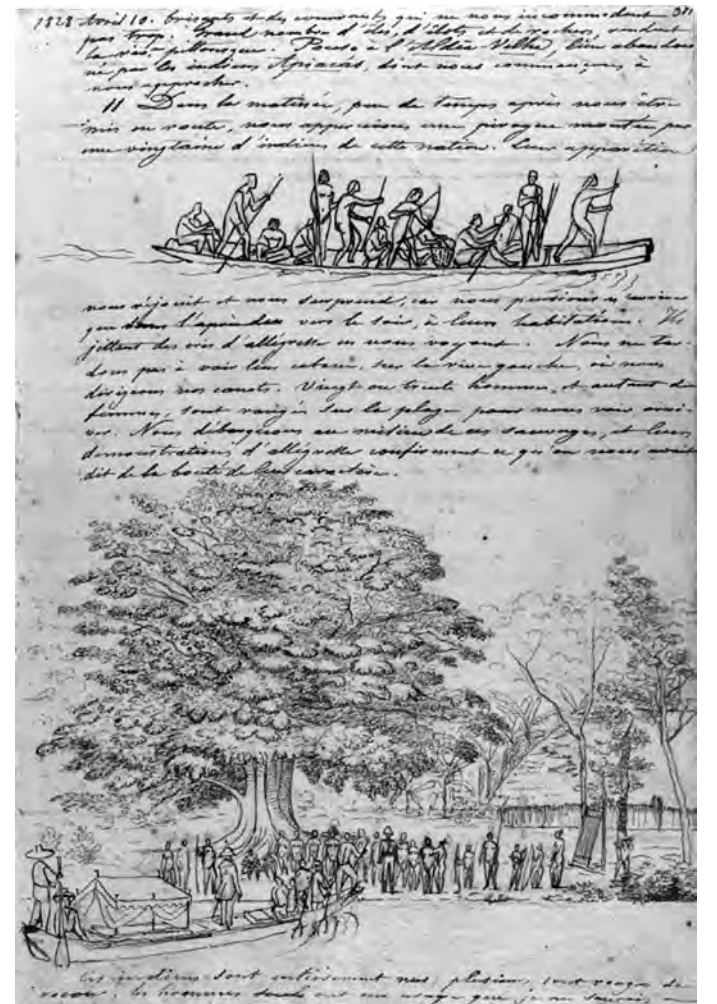 1828 Avril 10. brisants et des courants qui ne nous incommodent
pas trop. Grand nombre d'îles, d'îlots et de rochers, rendent
la vue pittoresque. Passé à l'Aldea Velha, lieu abandon
né par les indiens Apiacás, dont nous commençons à
nous approcher.
11 Dans la matinée, peu de temps après nous être
mis en route, nous appercevons une pirogue montée par
une vingtaine d'indiens de cette nation. Leur apparition
nous réjouit et nous surprend, car nous pensions n'arriver
que vers le soir, à leurs habitations. Ils
jettent des cris d'allégresse en nous voyant. Nous ne tar-
dons pas à voir leur cabane, sur la rive gauche, où nous
dirigeons nos canots. Vingt ou trente hommes, et autant de
femmes, sont rangés sur la plage pour nous voir arri-
ver. Nous débarquons au milieu de ces sauvages, et leurs
démonstrations d'allégresse confirment ce qu'on nous avait
dit de la bonté de leur caractère.
Ces indiens sont entièrement nus; plusieurs sont rouges de
rocou. les hommes seuls ont un usage que je ne